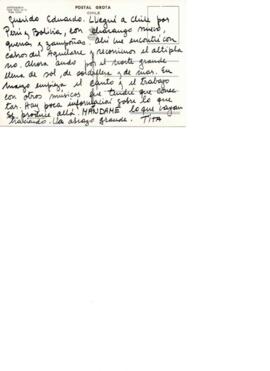 POSTAL GROTA
CHILE
Querido Eduardo. Llegué a Chile por
Perú y Bolivia, con charango nuevo,
quena y zampoñas. Ahí me encontré con
cabros del Aguilare y recorrimos el altipla
no. Ahora ando por el norte grande
llena de sol, de cordillera y de mar. En
mayo empieza el canto y el trabajo
con otros músicos que tendré que conec
tar. Hay poca información sobre lo que
se produce allá. MÁNDAME lo que vayan
haciendo. Un abrazo grande. TITA